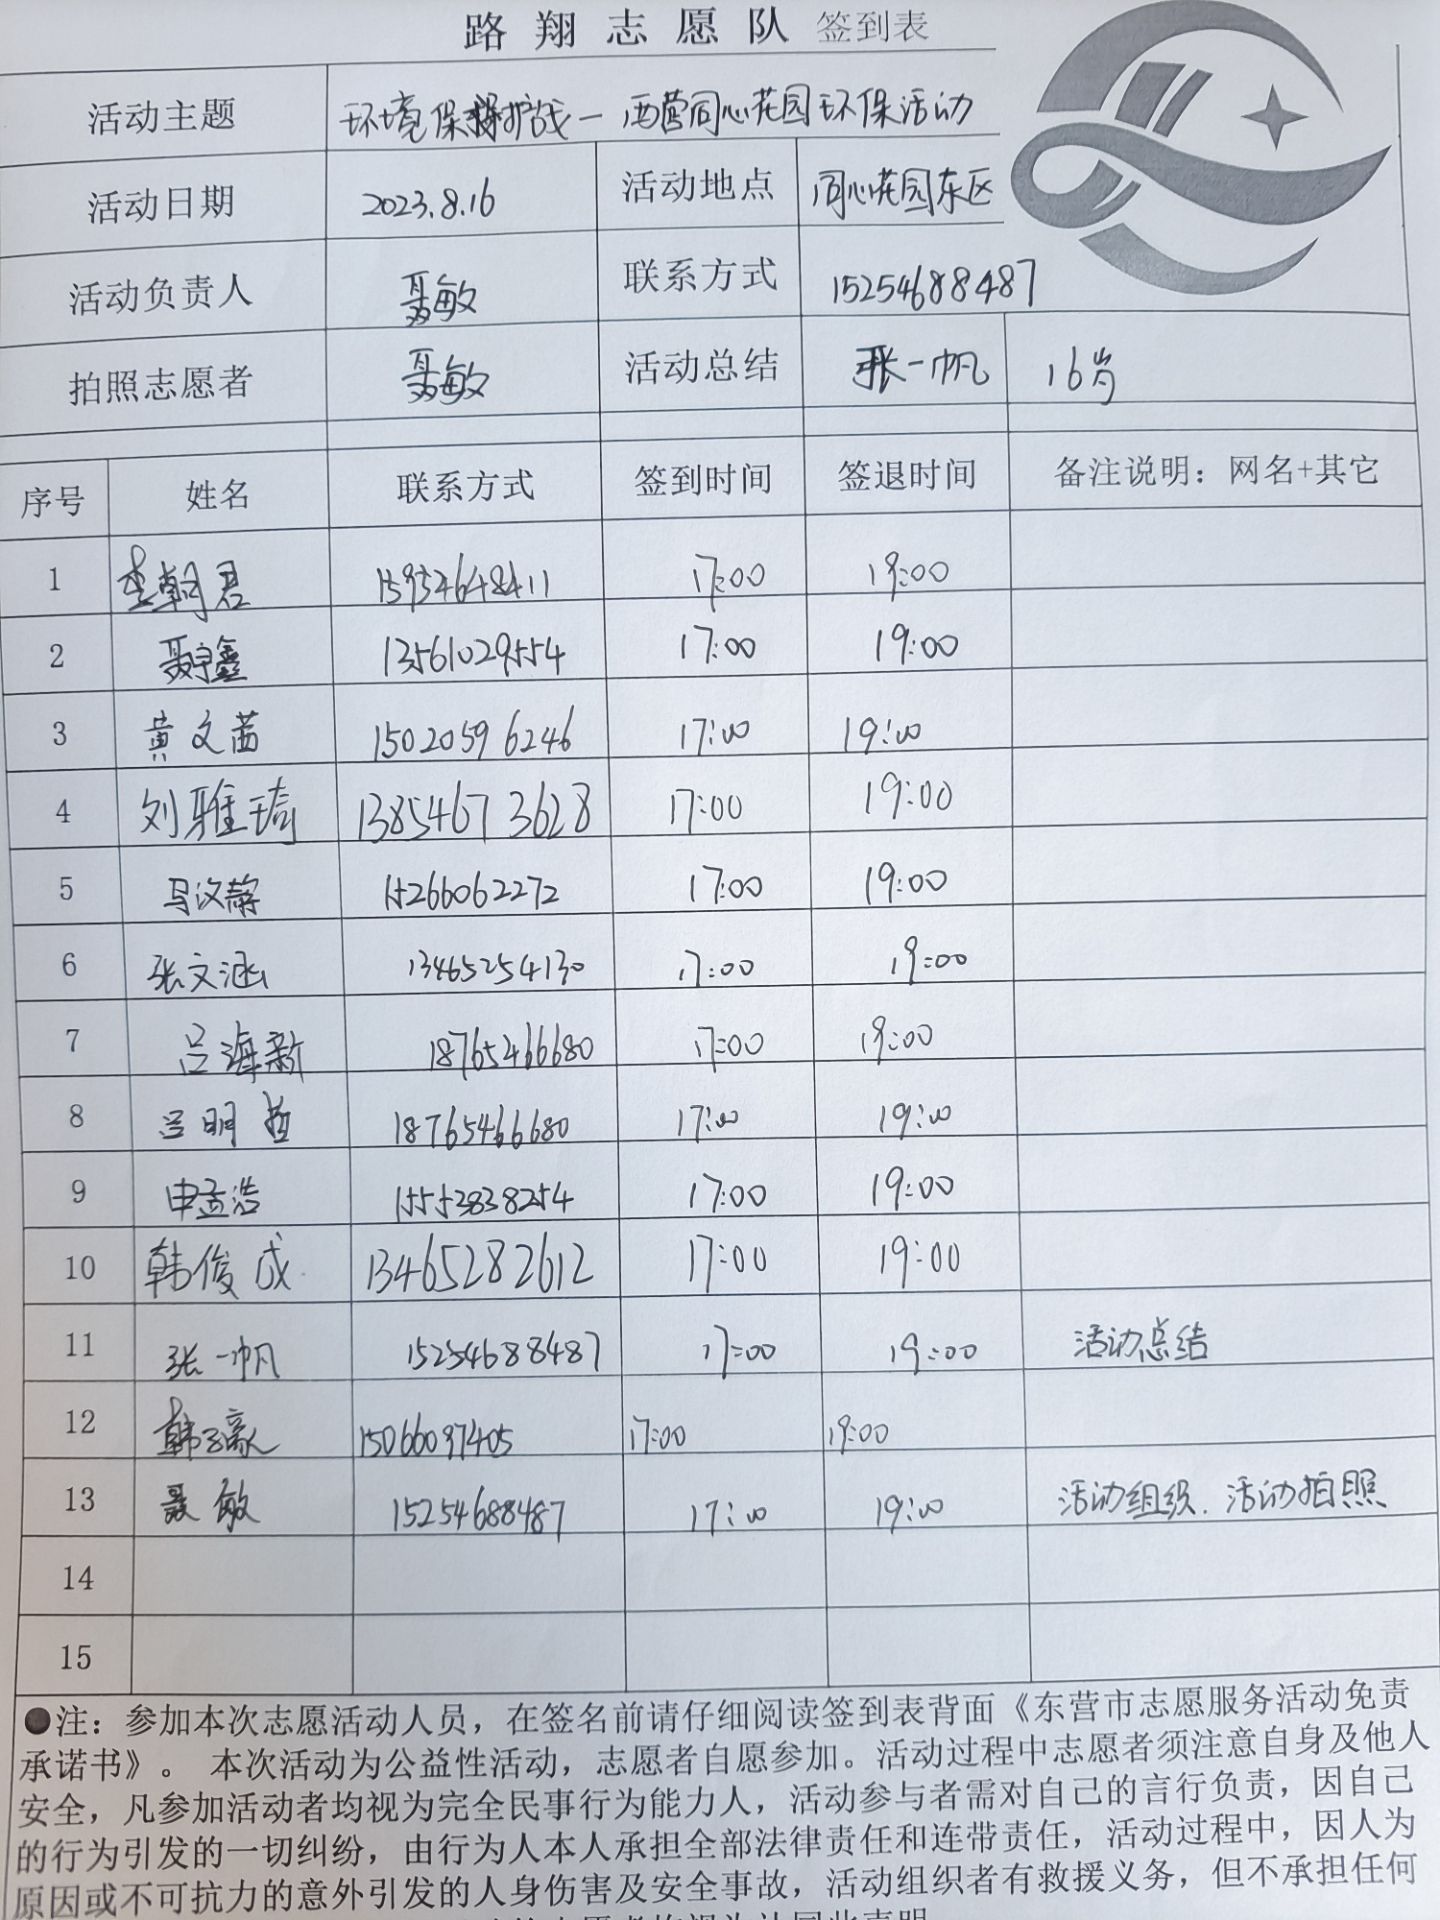 路翔志愿队 签到表
活动主题 环境保护战—西营同心花园环保活动
活动日期 2023.8.16 活动地点 同心花园东区
活动负责人 聂敏 联系方式 15254688487
拍照志愿者 聂敏 活动总结 张一帆 16岁
序号 姓名 联系方式 签到时间 签退时间 备注说明：网名+其它
1 李朝君 15954648411 17:00 19:00
2 聂宇鑫 13561029554 17:00 19:00
3 黄文茜 15020596246 17:00 19:00
4 刘雅琦 13854673628 17:00 19:00
5 马汶静 15266062272 17:00 19:00
6 张文涵 13465254130 17:00 19:00
7 吕海新 18765466680 17:00 19:00
8 吕明哲 18765466680 17:00 19:00
9 申孟浩 15553838254 17:00 19:00
10 韩俊成 13465282612 17:00 19:00
11 张一帆 15254688487 17:00 19:00 活动总结
12 韩子豪 15066097405 17:00 19:00
13 聂敏 15254688487 17:00 19:00 活动组织、活动拍照
14
15
●注：参加本次志愿活动人员，在签名前请仔细阅读签到表背面《东营市志愿服务活动免责
承诺书》。 本次活动为公益性活动，志愿者自愿参加。活动过程中志愿者须注意自身及他人
安全，凡参加活动者均视为完全民事行为能力人，活动参与者需对自己的言行负责，因自己
的行为引发的一切纠纷，由行为人本人承担全部法律责任和连带责任，活动过程中，因人为
原因或不可抗力的意外引发的人身伤害及安全事故，活动组织者有救援义务，但不承担任何